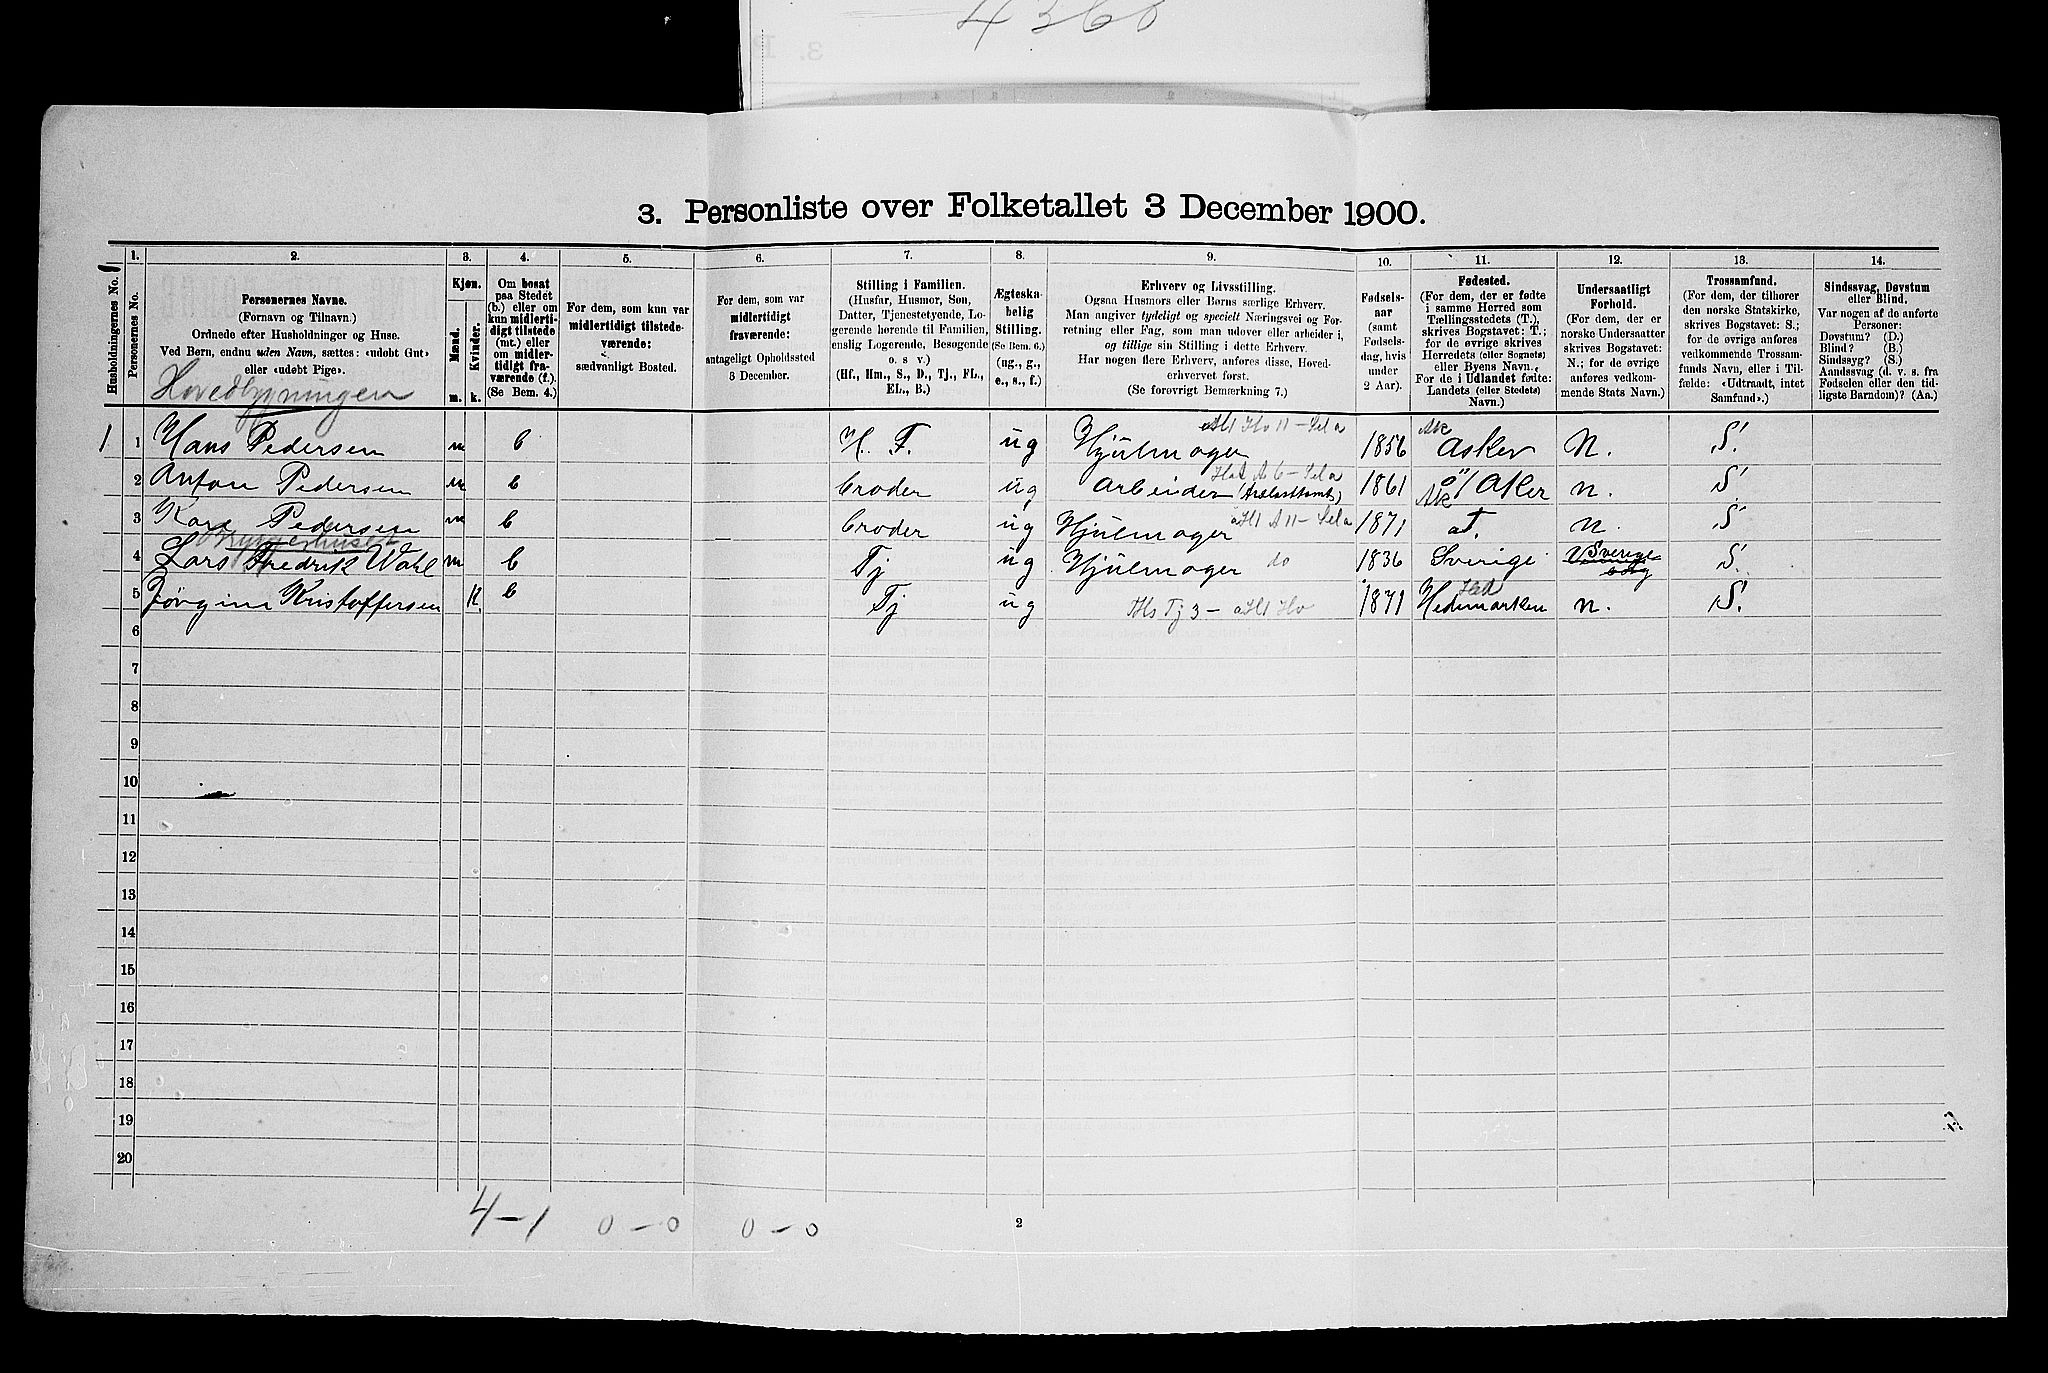 4366
3. Personliste over Folketallet 3 December 1900.
Husholdningernes No.
1.
Personernes No.
2.
Personernes Navne.
(Fornavn og Tilnavn.)
Ordnede efter Husholdninger og Huse.
Ved Børn, endnu uden Navn, sættes: «udøbt Gut»
eller «udøbt Pige».
Hovedbygningen
3.
Kjøn.
Mænd.
Kvinder.
m. k.
4.
Om bosat
paa Stedet
(b.) eller om
kun midlerti-
digt tilstede
(mt.) eller
om midler-
tidigt fra-
værende (f.).
(Se Bem. 4.)
5.
For dem, som kun var
midlertidigt tilstede-
værende:
sædvanligt Bosted.
6.
For dem, som var
midlertidigt
fraværende:
antageligt Opholdssted
3 December.
7.
Stilling i Familien.
(Husfar, Husmor, Søn,
Datter, Tjenestetyende, Lo-
gerende hørende til Familien,
enslig Logerende, Besøgende
o. s. v.)
(Hf., Hm., S., D., Tj., FL.,
EL., B.)
8.
Ægteska-
belig
Stilling.
(Se Bem. 6.)
(ug., g.,
e., s., f.)
9.
Erhverv og Livsstilling.
Ogsaa Husmors eller Børns særlige Erhverv.
Man angiver tydeligt og specielt Næringsvei og For-
retning eller Fag, som man udøver eller arbeider i,
og tillige sin Stilling i dette Erhverv.
Har nogen flere Erhverv, anføres disse, Hoved-
erhvervet først.
(Se forøvrigt Bemærkning 7.)
10.
Fødsels-
aar
(samt
Fødsels-
dag, hvis
under
2 Aar).
11.
Fødested.
(For dem, der er fødte
i samme Herred som
Tællingsstedets (T.),
skrives Bogstavet: T.;
for de øvrige skrives
Herredets (eller Sognets)
eller Byens Navn.
For de i Udlandet fødte:
Landets (eller Stedets)
Navn.)
12.
Undersaatligt
Forhold.
(For dem, der er
norske Undersaatter
skrives Bogstavet:
N.; for de øvrige
anføres vedkom-
mende Stats Navn.)
13.
Trossamfund.
(For dem, der tilhører
den norske Statskirke,
skrives Bogstavet: S.;
for de øvrige anføres
vedkommende Trossam-
funds Navn, eller i Til-
fælde: «Udtraadt, intet
Samfund».)
14.
Sindssvag, Døvstum
eller Blind.
Var nogen af de anførte
Personer:
Døvstum? (D.)
Blind? (B.)
Sindssyg? (S.)
Aandssvag (d. v. s. fra
Fødselen eller den tid-
ligste Barndom)? (Aa.)
1 1 Hans Pedersen m b H. F. ug Hjulmager 1856 Ak Asker N. S.
2 Anton Pedersen m b Broder ug Arbeider 1861 Ak Aker n. S.
3 Karl Pedersen m b Broder ug Hjulmager 1871 T. n. S
Bryggerhuset
4 Lars Fredrik Wahl m b Tj ug Hjulmager do 1836 Sverige Sverige S.
5 Jörgine Kristoffersen k b Tj ug 1871 Hed Hedemarken n. S.
6
7
8
9
10
11
12
13
14
15
16
17
18
19
20
4-1 0-0 0-0
2